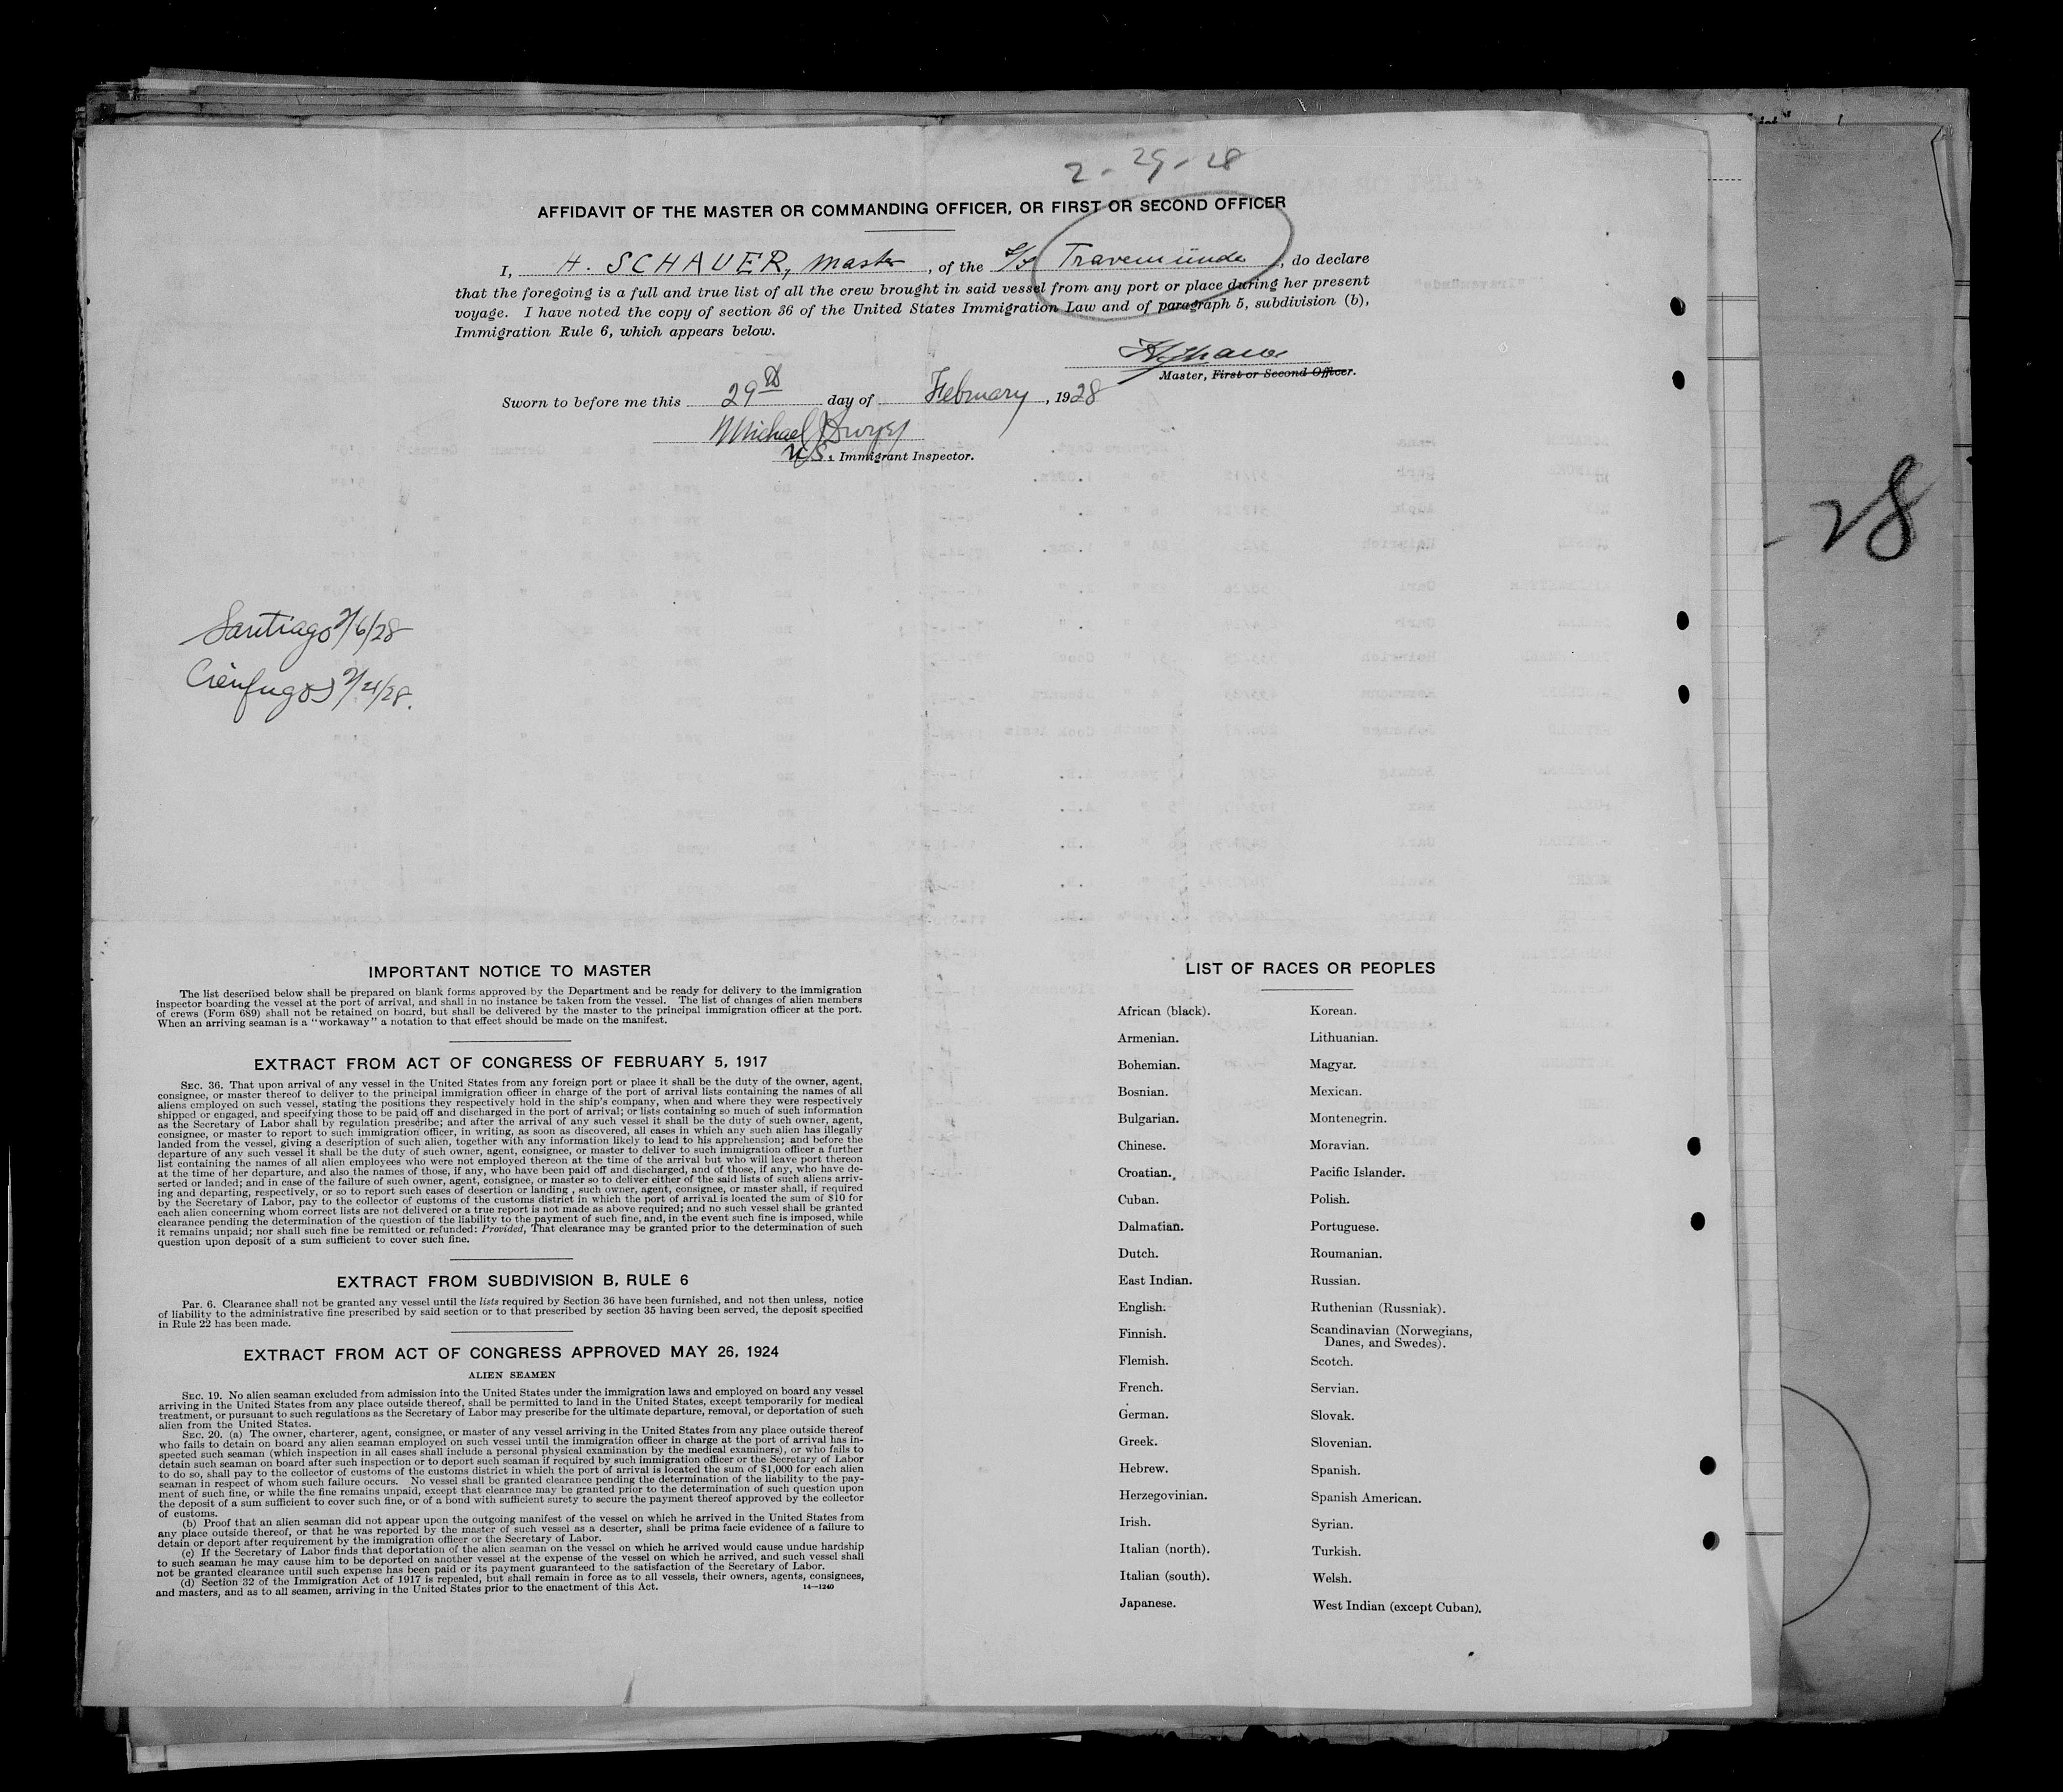 2-29-28
AFFIDAVIT OF THE MASTER OR COMMANDING OFFICER, OR FIRST OR SECOND OFFICER
I, H. SCHAUER, Master, of the S/S Travemünde, do declare
that the foregoing is a full and true list of all the crew brought in said vessel from any port or place during her present
voyage. I have noted the copy of section 36 of the United States Immigration Law and of paragraph 5, subdivision (b),
Immigration Rule 6, which appears below.
HSchauer
Master, First or Second Officer.
Sworn to before me this 29th day of February, 1928
Michael Dwyer
U.S. Immigrant Inspector.
-28
Santiago 2/6/28
Cienfugos 2/21/28.
IMPORTANT NOTICE TO MASTER
The list described below shall be prepared on blank forms approved by the Department and be ready for delivery to the immigration
inspector boarding the vessel at the port of arrival, and shall in no instance be taken from the vessel. The list of changes of alien members
of crews (Form 689) shall not be retained on board, but shall be delivered by the master to the principal immigration officer at the port.
When an arriving seaman is a "workaway" a notation to that effect should be made on the manifest.
EXTRACT FROM ACT OF CONGRESS OF FEBRUARY 5, 1917
SEC. 36. That upon arrival of any vessel in the United States from any foreign port or place it shall be the duty of the owner, agent,
consignee, or master thereof to deliver to the principal immigration officer in charge of the port of arrival lists containing the names of all
aliens employed on such vessel, stating the positions they respectively hold in the ship's company, when and where they were respectively
shipped or engaged, and specifying those to be paid off and discharged in the port of arrival; or lists containing so much of such information
as the Secretary of Labor shall by regulation prescribe; and after the arrival of any such vessel it shall be the duty of such owner, agent,
consignee, or master to report to such immigration officer, in writing, as soon as discovered, all cases in which any such alien has illegally
landed from the vessel, giving a description of such alien, together with any information likely to lead to his apprehension; and before the
departure of any such vessel it shall be the duty of such owner, agent, consignee, or master to deliver to such immigration officer a further
list containing the names of all alien employees who were not employed thereon at the time of the arrival but who will leave port thereon
at the time of her departure, and also the names of those, if any, who have been paid off and discharged, and of those, if any, who have de-
serted or landed; and in case of the failure of such owner, agent, consignee, or master so to deliver either of the said lists of such aliens arriv-
ing and departing, respectively, or so to report such cases of desertion or landing, such owner, agent, consignee, or master shall, if required
by the Secretary of Labor, pay to the collector of customs of the customs district in which the port of arrival is located the sum of $10 for
each alien concerning whom correct lists are not delivered or a true report is not made as above required; and no such vessel shall be granted
clearance pending the determination of the question of the liability to the payment of such fine, and, in the event such fine is imposed, while
it remains unpaid; nor shall such fine be remitted or refunded: Provided, That clearance may be granted prior to the determination of such
question upon deposit of a sum sufficient to cover such fine.
EXTRACT FROM SUBDIVISION B, RULE 6
Par. 6. Clearance shall not be granted any vessel until the lists required by Section 36 have been furnished, and not then unless, notice
of liability to the administrative fine prescribed by said section or to that prescribed by section 35 having been served, the deposit specified
in Rule 22 has been made.
EXTRACT FROM ACT OF CONGRESS APPROVED MAY 26, 1924
ALIEN SEAMEN
SEC. 19. No alien seaman excluded from admission into the United States under the immigration laws and employed on board any vessel
arriving in the United States from any place outside thereof, shall be permitted to land in the United States, except temporarily for medical
treatment, or pursuant to such regulations as the Secretary of Labor may prescribe for the ultimate departure, removal, or deportation of such
alien from the United States.
SEC. 20. (a) The owner, charterer, agent, consignee, or master of any vessel arriving in the United States from any place outside thereof
who fails to detain on board any alien seaman employed on such vessel until the immigration officer in charge at the port of arrival has in-
spected such seaman (which inspection in all cases shall include a personal physical examination by the medical examiners), or who fails to
detain such seaman on board after such inspection or to deport such seaman if required by such immigration officer or the Secretary of Labor
to do so, shall pay to the collector of customs of the customs district in which the port of arrival is located the sum of $1,000 for each alien
seaman in respect of whom such failure occurs. No vessel shall be granted clearance pending the determination of the liability to the pay-
ment of such fine, or while the fine remains unpaid, except that clearance may be granted prior to the determination of such question upon
the deposit of a sum sufficient to cover such fine, or of a bond with sufficient surety to secure the payment thereof approved by the collector
of customs.
(b) Proof that an alien seaman did not appear upon the outgoing manifest of the vessel on which he arrived in the United States from
any place outside thereof, or that he was reported by the master of such vessel as a deserter, shall be prima facie evidence of a failure to
detain or deport after requirement by the immigration officer or the Secretary of Labor.
(c) If the Secretary of Labor finds that deportation of the alien seaman on the vessel on which he arrived would cause undue hardship
to such seaman he may cause him to be deported on another vessel at the expense of the vessel on which he arrived, and such vessel shall
not be granted clearance until such expense has been paid or its payment guaranteed to the satisfaction of the Secretary of Labor.
(d) Section 32 of the Immigration Act of 1917 is repealed, but shall remain in force as to all vessels, their owners, agents, consignees,
and masters, and as to all seamen, arriving in the United States prior to the enactment of this Act.
14—1240
LIST OF RACES OR PEOPLES
African (black).
Armenian.
Bohemian.
Bosnian.
Bulgarian.
Chinese.
Croatian.
Cuban.
Dalmatian.
Dutch.
East Indian.
English.
Finnish.
Flemish.
French.
German.
Greek.
Hebrew.
Herzegovinian.
Irish.
Italian (north).
Italian (south).
Japanese.
Korean.
Lithuanian.
Magyar.
Mexican.
Montenegrin.
Moravian.
Pacific Islander.
Polish.
Portuguese.
Roumanian.
Russian.
Ruthenian (Russniak).
Scandinavian (Norwegians,
Danes, and Swedes).
Scotch.
Servian.
Slovak.
Slovenian.
Spanish.
Spanish American.
Syrian.
Turkish.
Welsh.
West Indian (except Cuban).